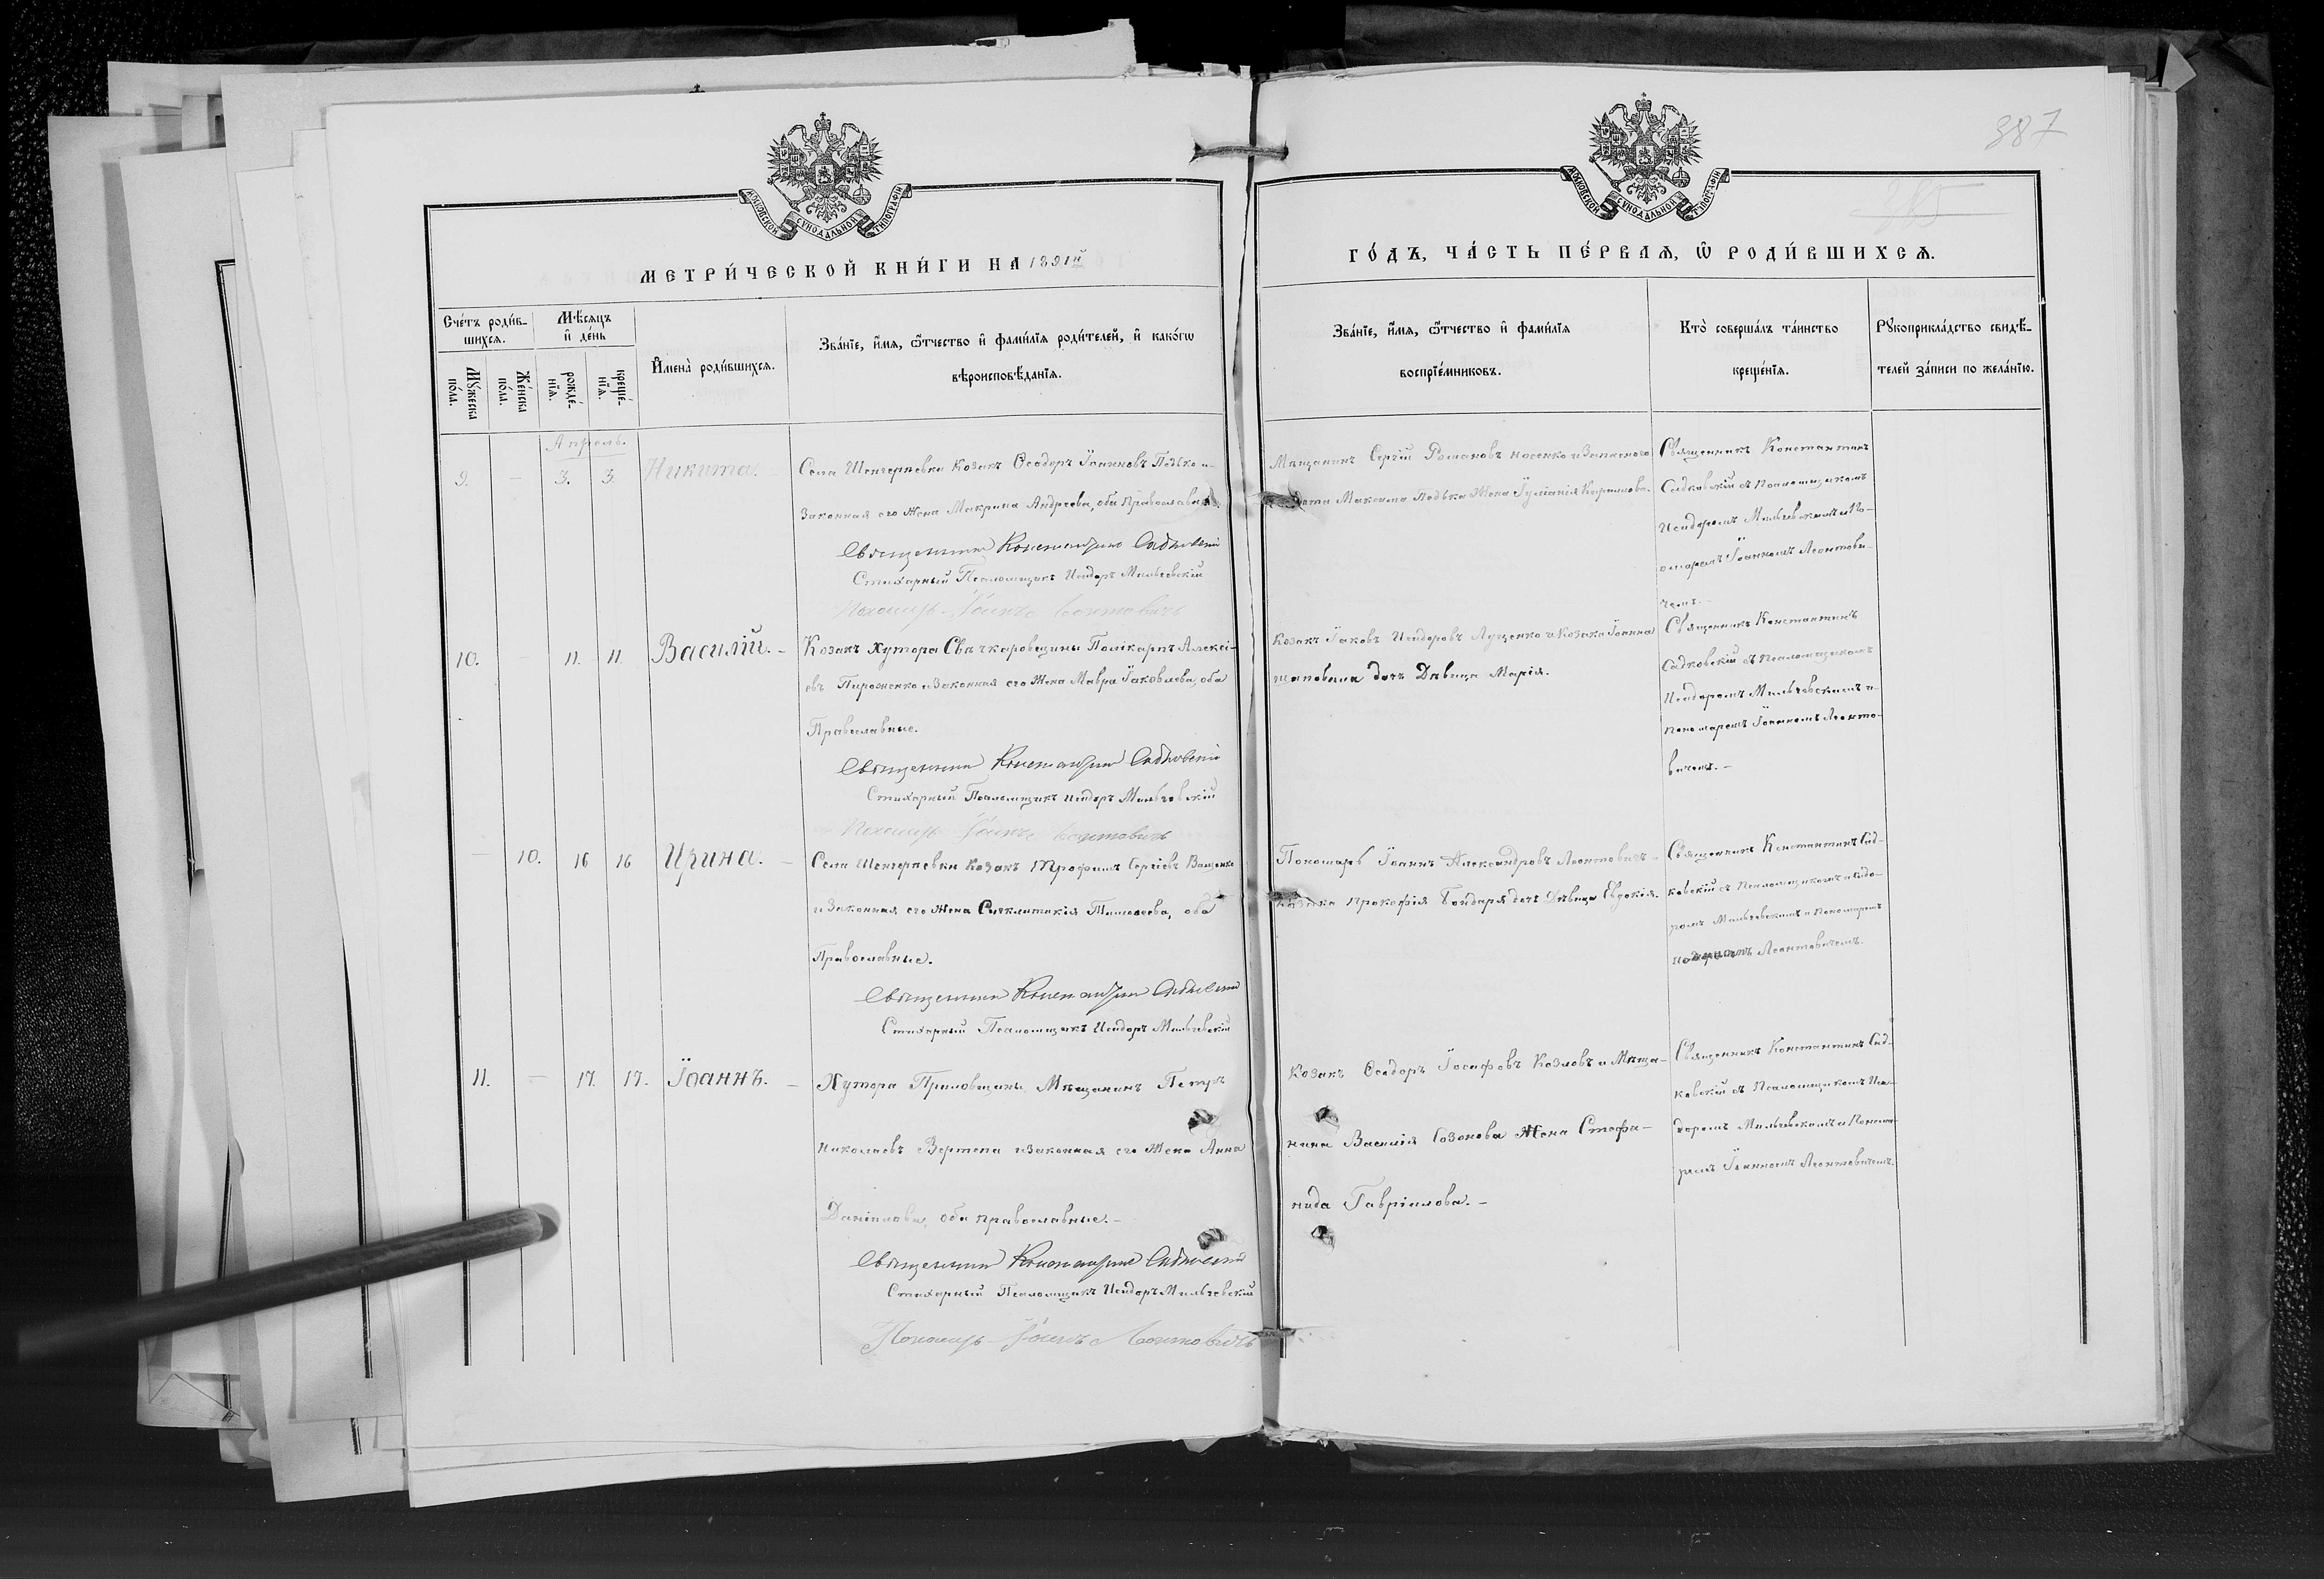 387
385
МОСКОВСКОЙ СУНОДАЛЬНОЙ ТИПОГРАФІИ
МОСКОВСКОЙ СУНОДАЛЬНОЙ ТИПОГРАФІИ
МЕТРИ́ЧЕСКОЙ КНИ́ГИ НА 1891й
ГО́ДЪ, ЧА́СТЬ ПЕ́РВАѦ, Ѡ РОДИ́ВШИХСѦ.
Сче́тъ роди́в-
шихсѧ.
Мѣ́сѧцъ
и҆ де́нь
Мꙋ́жеска
по́ла.
Же́нска
по́ла.
рожде́-
нїѧ.
креще́-
нїѧ.
И҆мена̀ роди́вшихсѧ.
Зва́нїе, и҆́мѧ, ѻ҆́тчество и҆ фами́лїѧ роди́телей, и҆ како́гѡ
вѣроисповѣ́данїѧ.
Зва́нїе, и҆́мѧ, ѻ҆́тчество и҆ фами́лїѧ
воспрїе́мниковъ.
Кто̀ соверша́лъ та́инство
креще́нїѧ.
Рꙋкоприкла́дство свидѣ́-
телей за́писи по жела́нїю.
Апрѣль.
9. – 3. 3. Никита.
Села Шенгерѣевки Козакъ Ѳеодоръ Іоанновъ и
Законная его Жена Макрина Андреева, оба Православные.
Священникъ Константинъ Садковскій
Стихарный Псаломщикъ Исидоръ Мильчевскій
Пономарь Іоаннъ Леонтовичъ
Мѣщанинъ Сергій Романовъ Носенко и Запаснаго
Максима Жена
Священникъ Константинъ
Садковскій съ Псаломщикомъ
Исидоромъ Мильчевскимъ и По-
номаремъ Іоанномъ Леонтови-
чемъ.
10. – 11. 11. Василій. –
Козакъ Хутора Свѣчкаровщины Поликарпъ Алексі-
евъ Пироженко и Законная его Жена Мавра Іаковлева, оба
Православные.
Священникъ Константинъ Садковскій
Стихарный Псаломщикъ Исидоръ Мильчевскій
Пономарь Іоаннъ Леонтовичъ
Козакъ Іаковъ Исидоровъ Луценко и Козака Іоанна
Шаповала дочь Дѣвица Марія.
Священникъ Константинъ
Садковскій съ Псаломщикомъ
Исидоромъ Мильчевскимъ и
Пономаремъ Іоанномъ Леонто-
вичемъ. –
– 10. 16 16 Ирина. –
Села Шенгерѣевки Козакъ Трофимъ Сергіевъ Ващенко
и Законная его Жена Сигклитикія Тимоѳеева, оба
Православные.
Священникъ Константинъ Садковскій
Стихарный Псаломщикъ Исидоръ Мильчевскій
Пономарь Іоаннъ Александровъ Леонтовичъ –
Козака Прокофія Бондаря дочь Дѣвица Евдокія.
Священникъ Константинъ Сад-
ковскій съ Псаломщикомъ Исидо-
ромъ Мильчевскимъ и Пономаремъ
Леонтовичемъ.
11. – 17. 17. Іоаннъ. –
Хутора Мѣщанинъ Петръ
Николаевъ Вертепа и Законная его Жена Анна
Даніилова, оба православные. –
Священникъ Константинъ Садковскій
Стихарный Псаломщикъ Исидоръ Мильчевскій
Пономарь Іоаннъ Леонтовичъ
Козакъ Ѳеодоръ Іосифовъ Козловъ и Мѣща-
нина Василія Созонова Жена Стефа-
нида Гавріилова. –
Священникъ Константинъ Сад-
ковскій съ Псаломщикомъ Иси-
доромъ Мильчевскимъ и Понома-
ремъ Іоанномъ Леонтовичемъ.